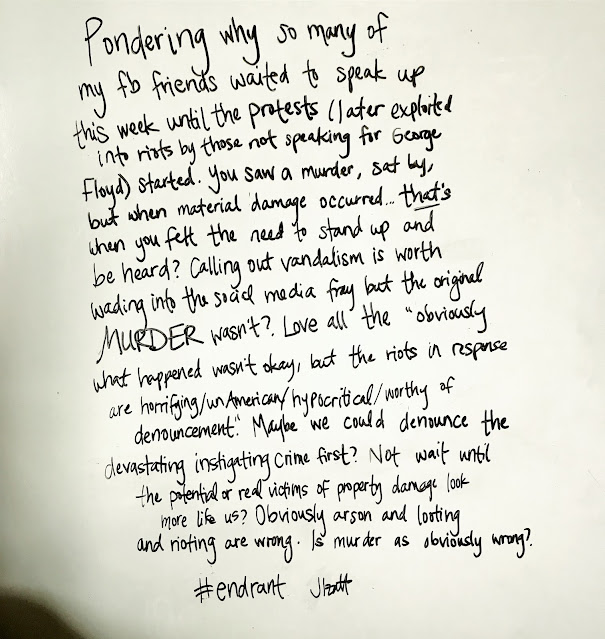 Pondering why so many of
my fb friends waited to speak up
this week until the protests (later exploited
into riots by those not speaking for George
Floyd) started. You saw a murder, sat by,
but when material damage occurred... that's
when you felt the need to stand up and
be heard? Calling out vandalism is worth
wading into the social media fray but the original
MURDER wasn't? Love all the "obviously
what happened wasn't okay, but the riots in response
are horrifying/unAmerican/hypocritical/worthy of
denouncement." Maybe we could denounce the
devastating instigating crime first? Not wait until
the potential or real victims of property damage look
more like us? Obviously arson and looting
and rioting are wrong. Is murder as obviously wrong?
#endrant